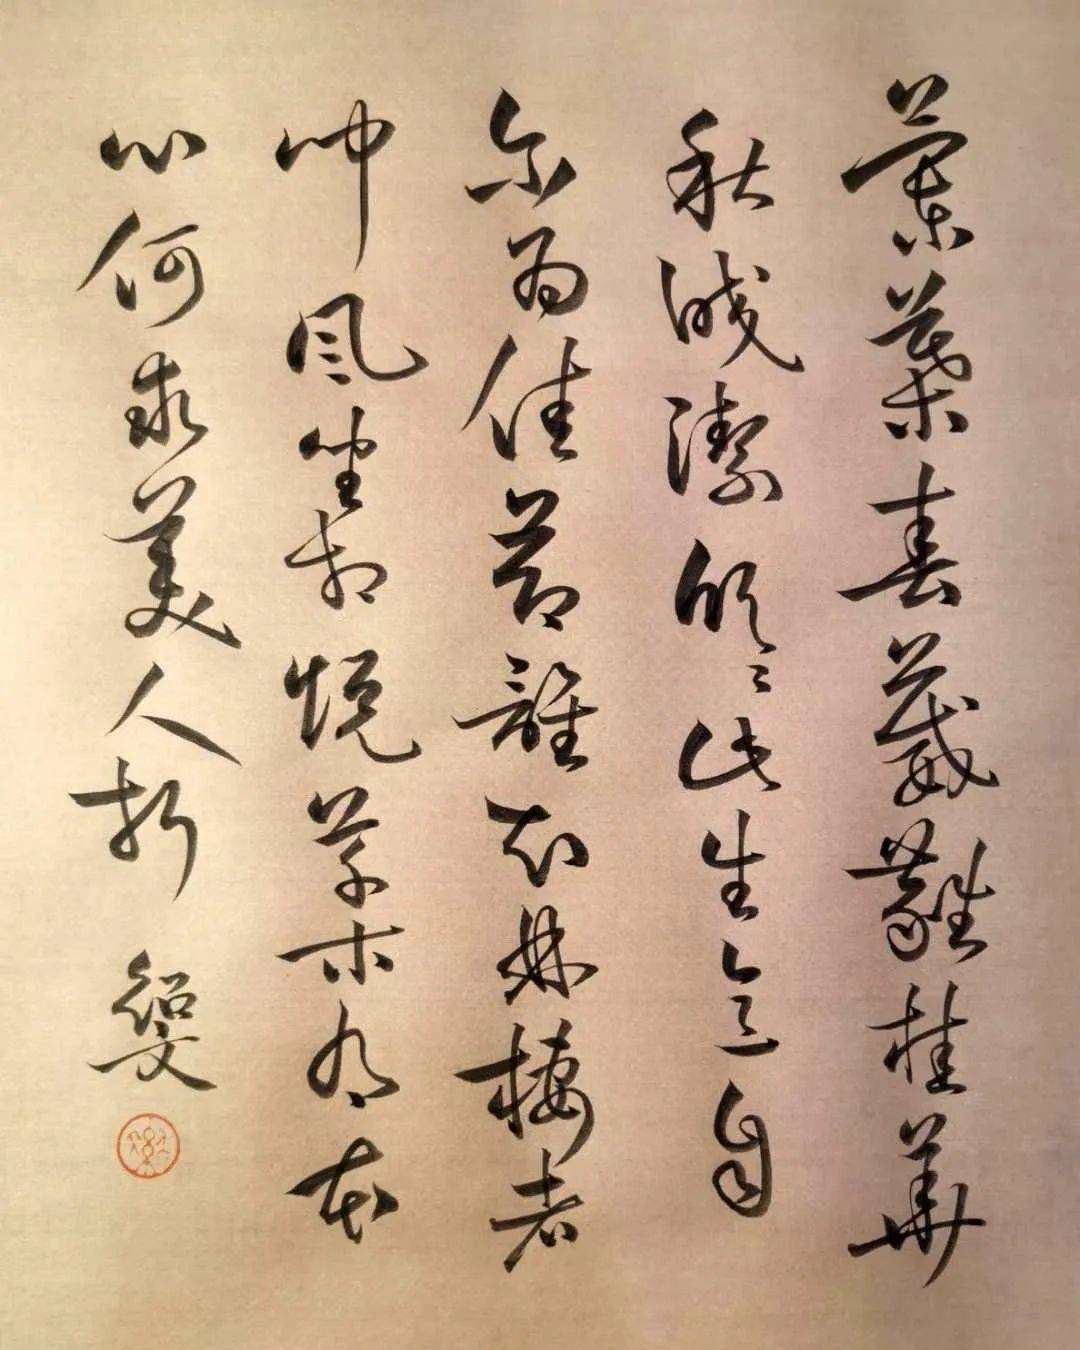 蘭葉春葳蕤桂華
秋皎潔欣〻此生意自
尔為佳節誰知林棲者
聞風坐相悦草木有本
心何求美人折